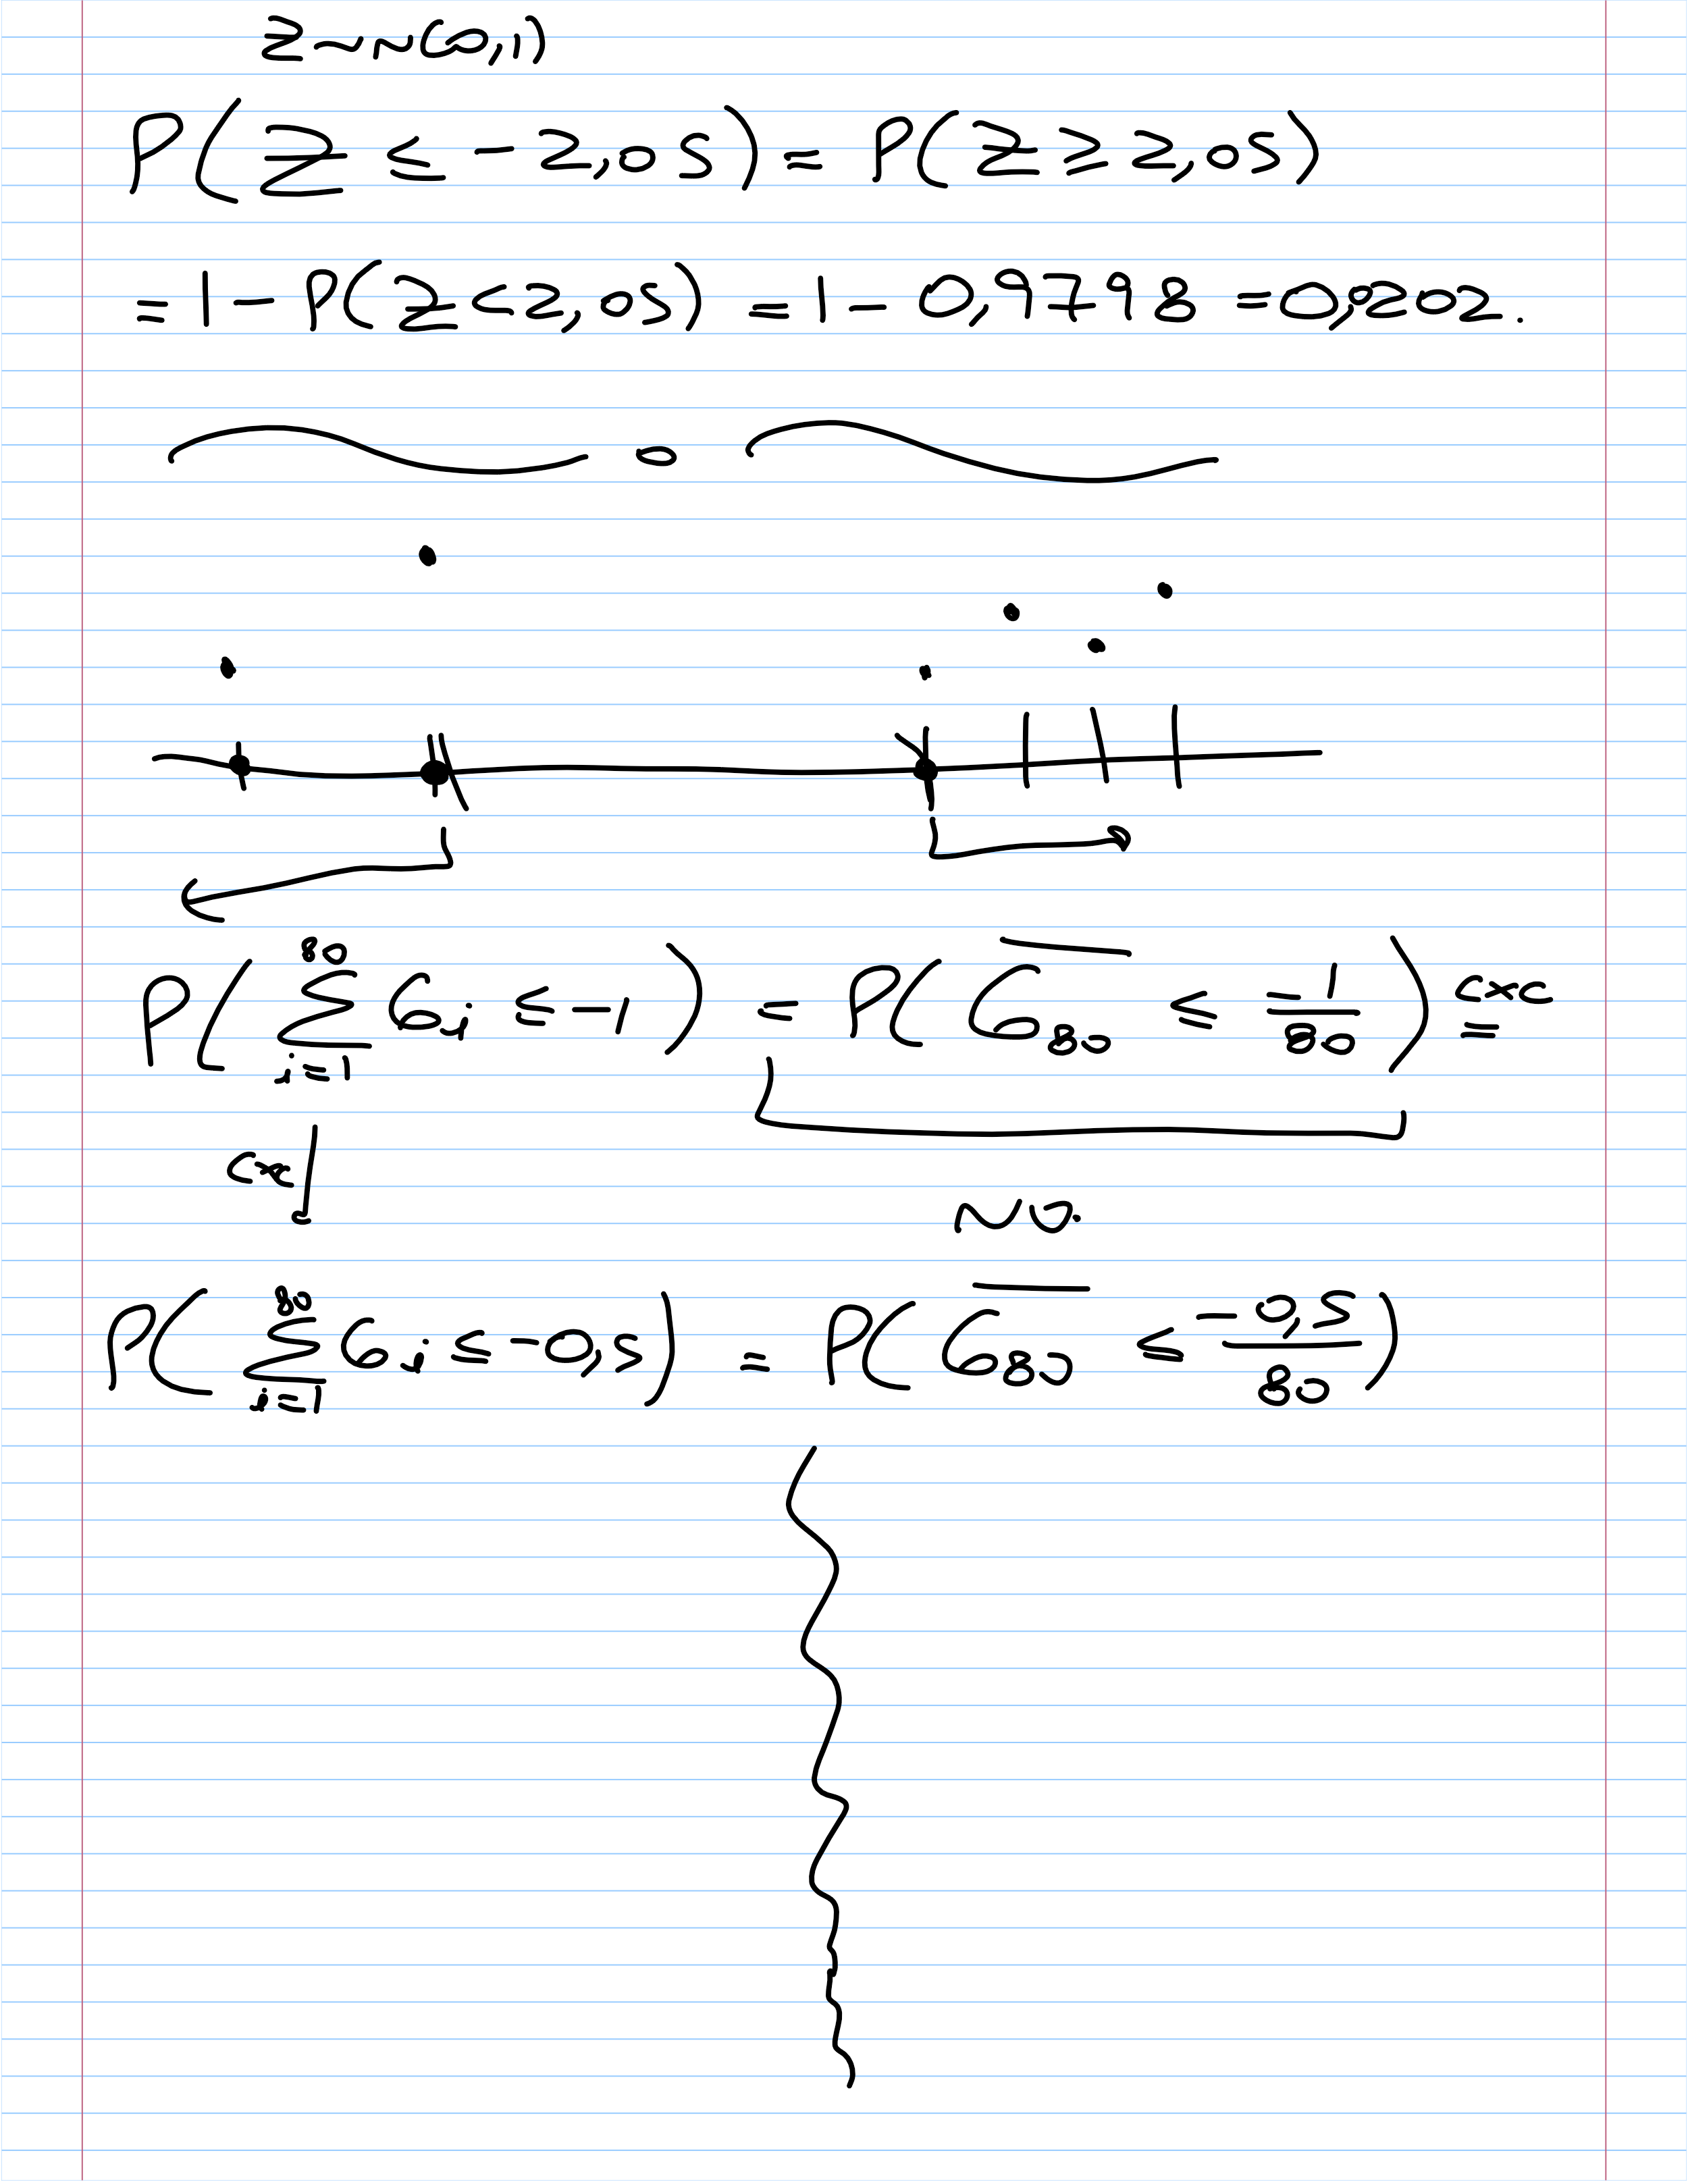 Z ~ N(0,1)
P(Z ≤ -2,05) = P(Z ≥ 2,05)
= 1 - P(Z < 2,05) = 1 - 0,9798 = 0,0202.
P(∑_{i=1}^{80} G_i ≤ -1) = P(\overline{G}_{80} ≤ \frac{-1}{80}) \overset{cxc}{=}
cxc
NO.
P(∑_{i=1}^{80} G_i ≤ -0,5) = P(\overline{G}_{80} ≤ \frac{-0,5}{80})